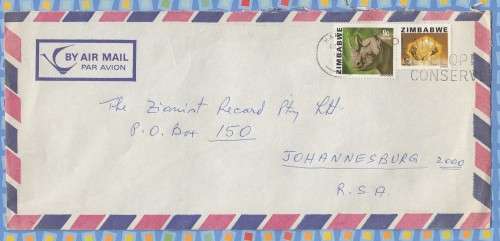 BY AIR MAIL
PAR AVION
ZIMBABWE
ZIMBABWE
CONSERV
The Zionist Record Pty Ltd.
P.O. Box 150
JOHANNESBURG 2000
R.S.A.